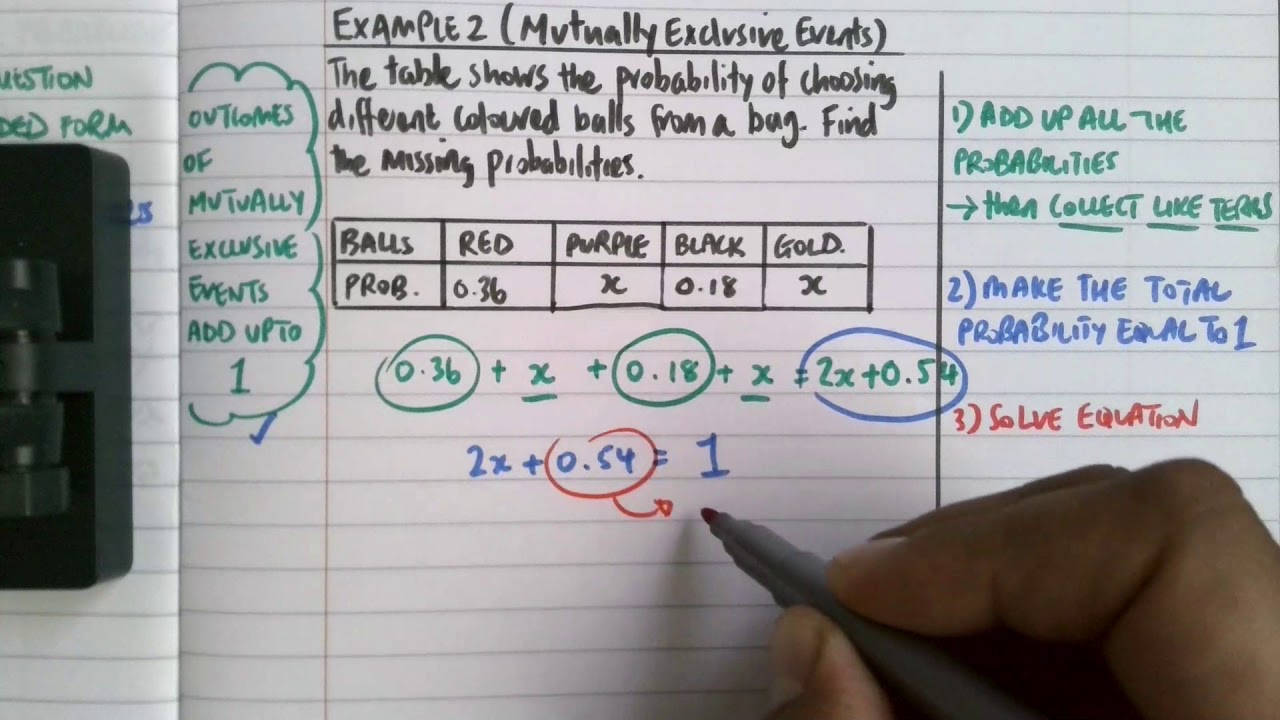 UESTION
DED FORM
OUTCOMES
OF
MUTUALLY
EXCLUSIVE
EVENTS
ADD UP TO
1
EXAMPLE 2 (Mutually Exclusive Events)
The table shows the probability of choosing
different coloured balls from a bag. Find
the missing probabilities.
BALLS RED PURPLE BLACK GOLD.
PROB. 0.36 x 0.18 x
0.36 + x + 0.18 + x = 2x+0.54
2x + 0.54 = 1
1) ADD UP ALL THE
PROBABILITIES
→ then COLLECT LIKE TERMS
2) MAKE THE TOTAL
PROBABILITY EQUAL TO 1
3) SOLVE EQUATION